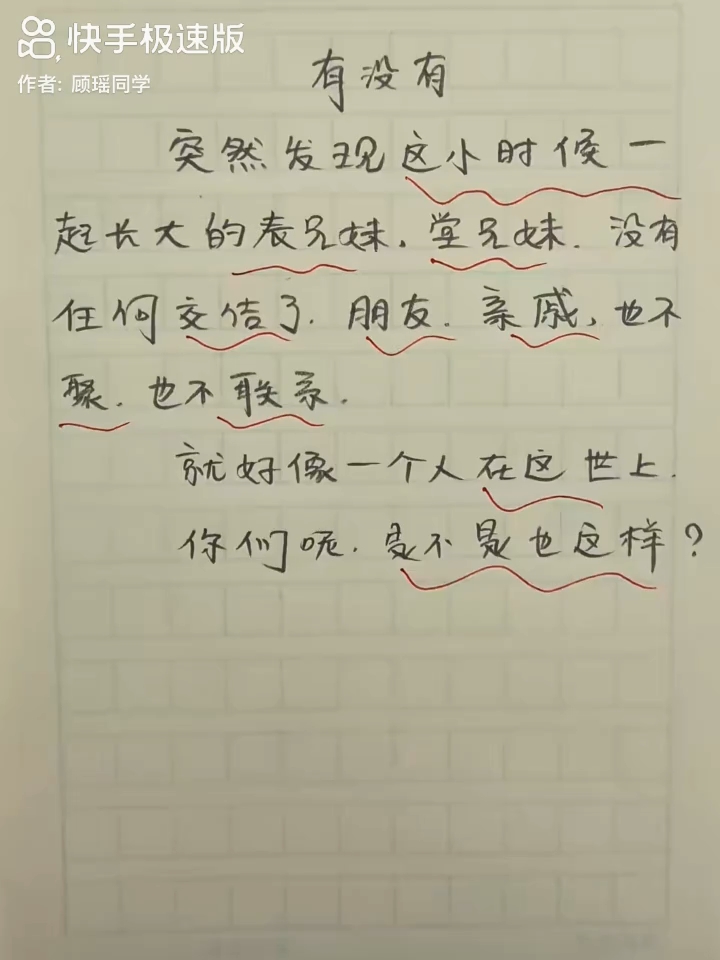 快手极速版
作者: 顾瑶同学
有没有
突然发现这小时候一
起长大的表兄妹、堂兄妹.没有
任何交佶了.朋友.亲戚、也不
聚.也不联系.
就好像一个人在这世上.
你们呢.是不是也这样?